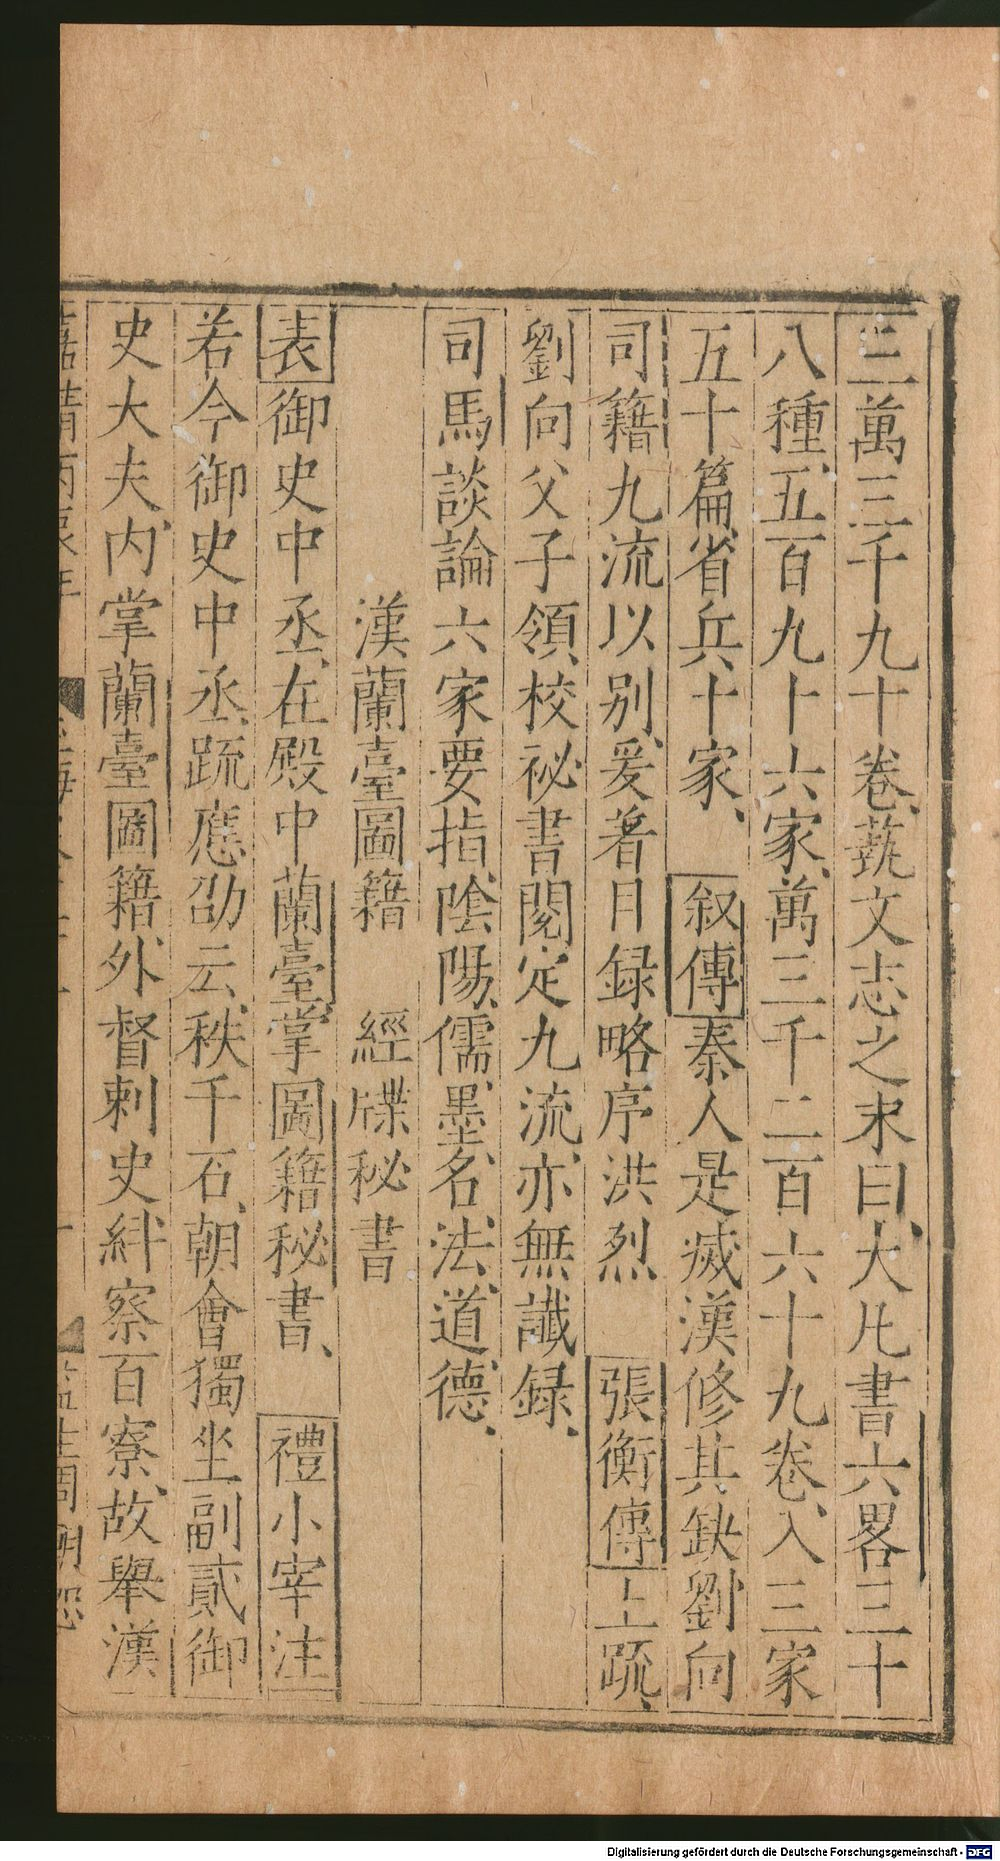 三萬三千九十卷、蓺文志之末曰、大凡書六畧三十
八種、五百九十六家、萬三千二百六十九卷、入三家
五十篇、省兵十家、叙傳秦人是滅漢修其缺劉向
司籍九流以别、爰著目録略序洪烈 張衡傳上疏、
劉向父子領校祕書閱定九流、亦無讖録、
司馬談論六家要指、陰陽、儒、墨、名、法、道德、
漢蘭臺圖籍 經牒秘書
表御史中丞、在殿中蘭臺、掌圖籍秘書、 禮小宰注
若今御史中丞、疏應劭云、秩千石、朝會獨坐副貳御
史大夫、内掌蘭臺圖籍、外督刺史紏察百寮、故舉漢
嘉靖丙辰年 監生周
Digitalisierung gefördert durch die Deutsche Forschungsgemeinschaft - DFG